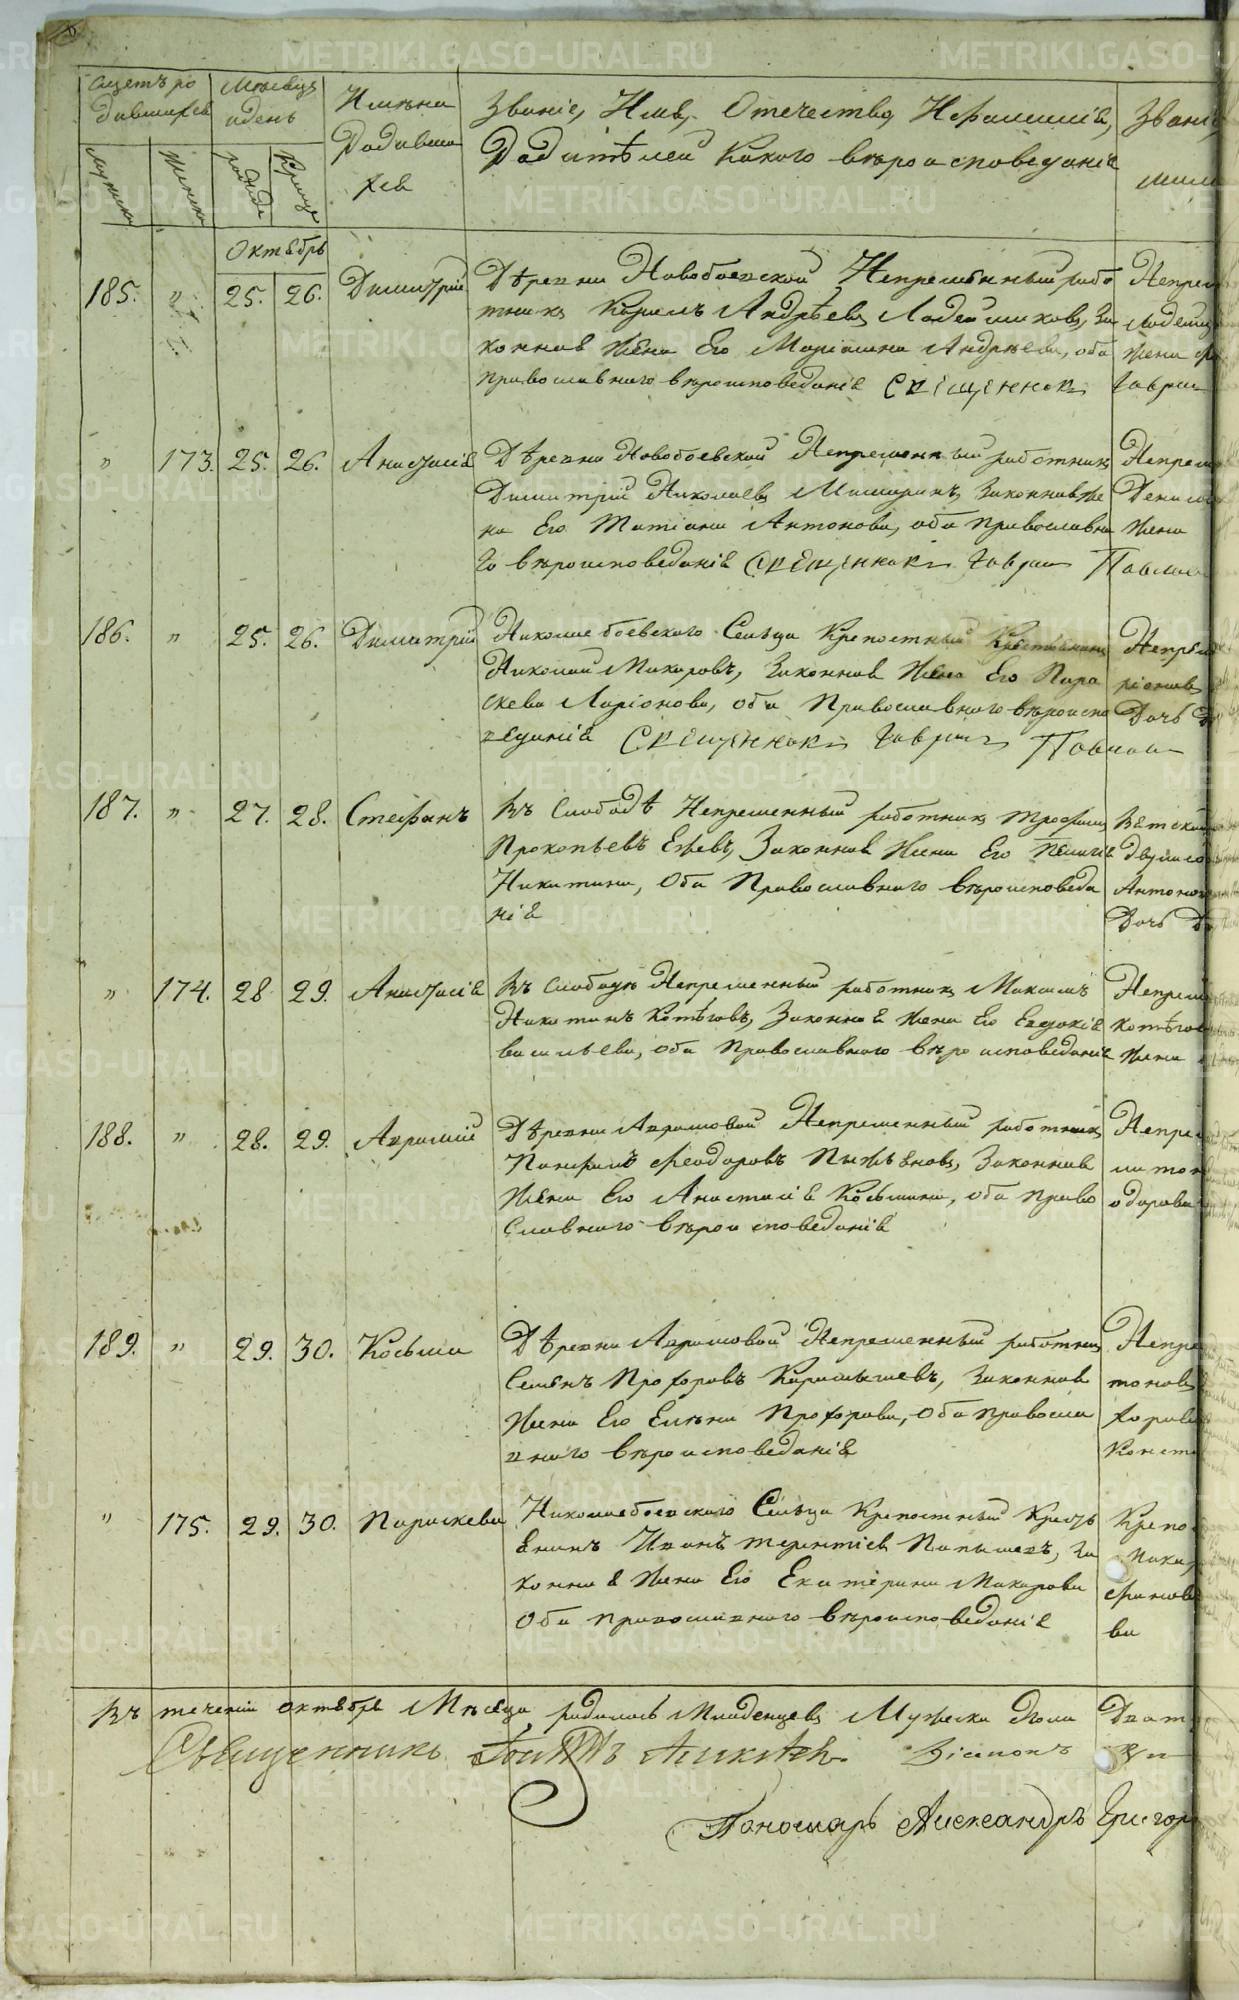 Счетъ ро
дившихся
Мѣсяцъ
и день
Имяна
Родивши
хся
Званіе, Имя, Отечество, И Фамилія,
Родителей Какого вѣроисповеданія
Звані
мили
мужеска
женска
рожде
креще
Октябрь
185. " 25. 26. Димитрій
Дѣревни Новобоевской Непремѣнный рабо
тникъ Карпъ Андрѣевъ Ладейщиковъ, За
конная Жена Его Маріамна Андрѣева, оба
православнаго вѣроисповеданія Священникъ Гаврии
Непрем
Ладейщ
Жена
" 173. 25. 26. Анастасія
Дѣревни Новобоевской Непременный работникъ
Димитрій Николаевъ Мишаринъ, Законная Же
на Его Татіана Антонова, оба православна
го вѣроисповеданія Священникъ Гаврии Павлов
Непрем
Жена
186. " 25. 26. Димитрій
Николаебоевскаго Сельца Крепостный Крестьянинъ
Николай Макаровъ, Законная Жена Его Пара
скева Ларіонова, оба Православнаго вѣроиспо
веданія Священникъ Гаврии Павлов
Непрем
ріонав
Дочь
187. " 27. 28. Стефанъ
Въ Слободѣ Непременный работникъ Трофимъ
Прокопьевъ Ежевъ, Законная Жена Его Пелагія
Никитина, Оба Православнаго вѣроисповеда
нія
Вятской
Антонов
Дочь
" 174. 28 29. Анастасія
Въ Слободѣ Непременный работникъ Максимъ
Никитинъ Котѣговъ, Законная Жена Его Евдокія
васильева, оба Православнаго вѣроисповеданія
Непрем
котѣгов
Жена
188. " 28. 29. Аврамій
Дѣревни Аврамовой Непременный работникъ
Панфилъ Феодоровъ Пыжьяновъ, Законная
Жена Его Анастасія Косьмина, оба Право
славнаго вѣроисповеданія
Непрем
одорова
189. " 29. 30. Косьма
Дѣревни Аврамовой Непременный работникъ
Семенъ Прохоровъ Карамышевъ, Законная
Жена Его Елѣна Прохорова, Оба Правосла
внаго вѣроисповеданія
Непре
тонов
хорова
Конста
" 175. 29. 30. Параскева
Николаебоевскаго Сельца Крепостный Кресть
янинъ Иванъ терентіевъ Папышевъ, За
конная Жена Его Екатерина Макарова
Оба православнаго вѣроисповеданія
Крепо
ва
Въ теченіи октября Мѣсяца родилось Младенцевъ Мужеска Пола Дват
Священникъ Іоаннъ Діаконъ
Пономарь Александръ Григор
METRIKI.GASO-URAL.RU